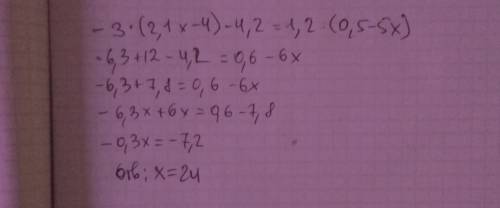 - 3 · (2,1x - 4) - 4,2 = 1,2 · (0,5 - 5x)
-6,3 + 12 - 4,2 = 0,6 - 6x
-6,3 + 7,8 = 0,6 - 6x
- 6,3x + 6x = 0,6 - 7,8
- 0,3x = - 7,2
отв; x = 24